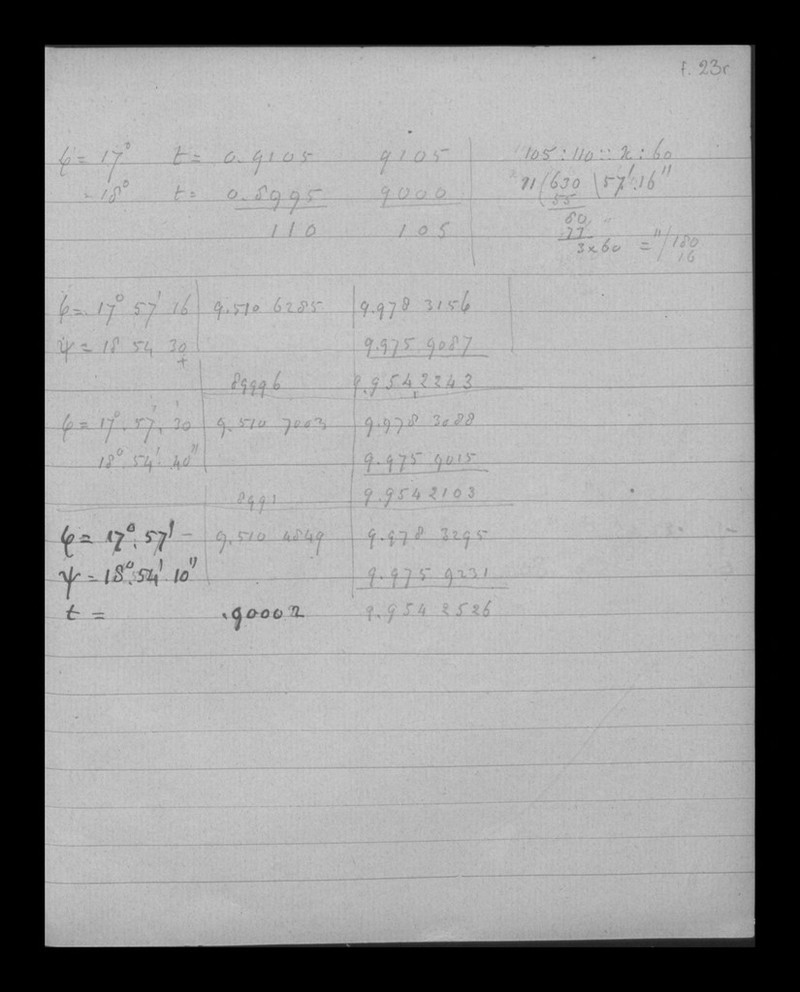 f. 23r
φ = 17° t = 0.9105 9105 105 : 110 :: x : 60
= 18° t = 0.8995 9000 11(630 \57'.16"
110 105 55
80
77
3x60 = "/180
16
φ = 17° 57' 16 9.510 6285 9.978 3156
ψ = 18 54 30 9.975 9087
+
89996 9.9542243
φ = 17°. 57'. 30 9.510 7003 9.978 3088
18°. 54'. 40" 9.975 9015
8991 9.9542103
φ = 17°. 57' – 9.510 4849 9.978 3295
ψ = 18°. 54'. 10" 9.975 9231
t = .90002 9.954 2526